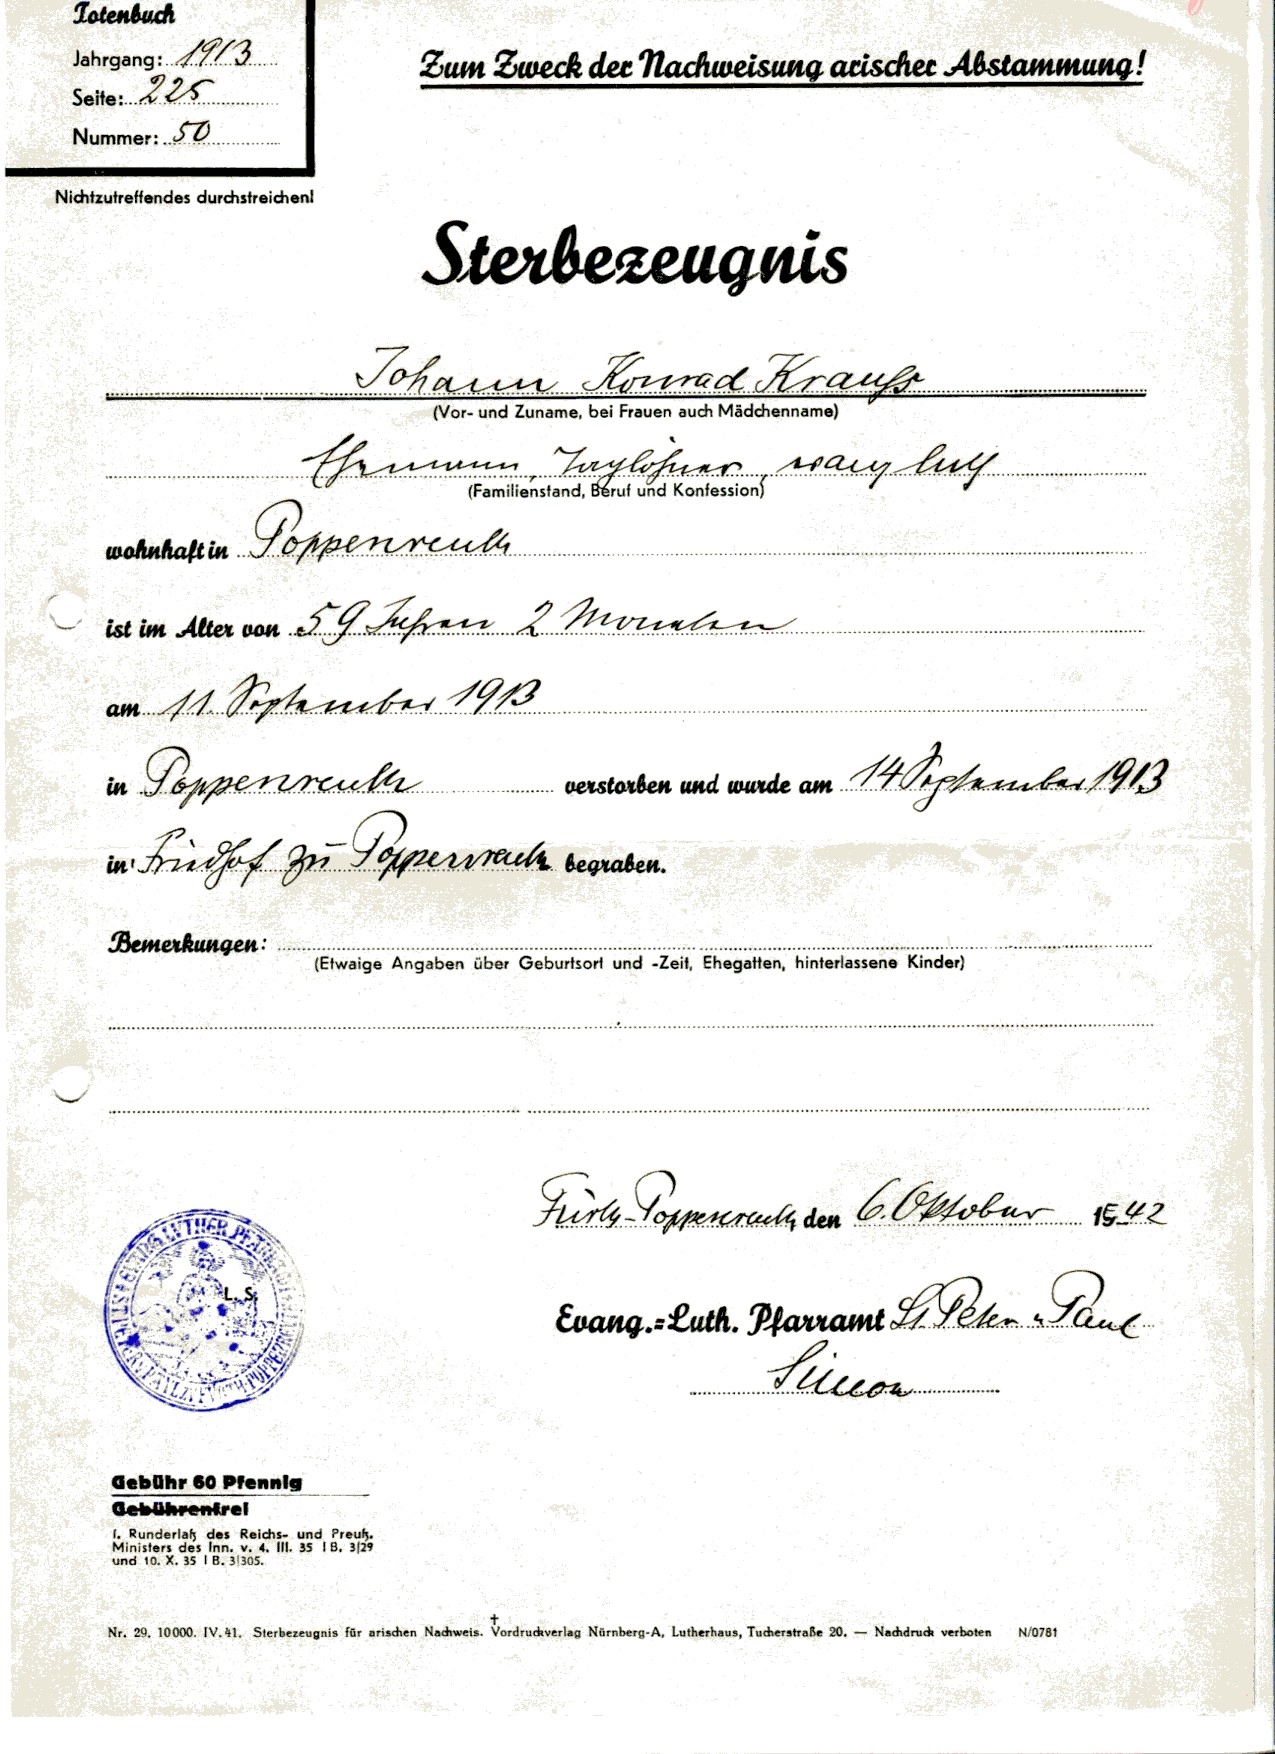 Totenbuch
Jahrgang: 1913
Seite: 225
Nummer: 50
Zum Zweck der Nachweisung arischer Abstammung!
Nichtzutreffendes durchstreichen!
Sterbezeugnis
Johann Konrad Krauß
(Vor- und Zuname, bei Frauen auch Mädchenname)
Ehemann, Taglöhner, evang luth
(Familienstand, Beruf und Konfession)
wohnhaft in Poppenreuth
ist im Alter von 59 Jahren 2 Monaten
am 11. September 1913
in Poppenreuth verstorben und wurde am 14 September 1913
in Friedhof zu Poppenreuth begraben.
Bemerkungen:
(Etwaige Angaben über Geburtsort und -Zeit, Ehegatten, hinterlassene Kinder)
Fürth-Poppenreuth, den 6. Oktober 1942
L. S.
Evang.=Luth. Pfarramt St. Peter u Paul
Simon
Gebühr 60 Pfennig
Gebührenfrei
I. Runderlaß des Reichs- und Preuß.
Ministers des Inn. v. 4. III. 35 I B. 3/29
und 10. X. 35 I B. 3/305.
Nr. 29. 10000. IV. 41. Sterbezeugnis für arischen Nachweis. Vordruckverlag Nürnberg-A, Lutherhaus, Tucherstraße 20. — Nachdruck verboten N/0781